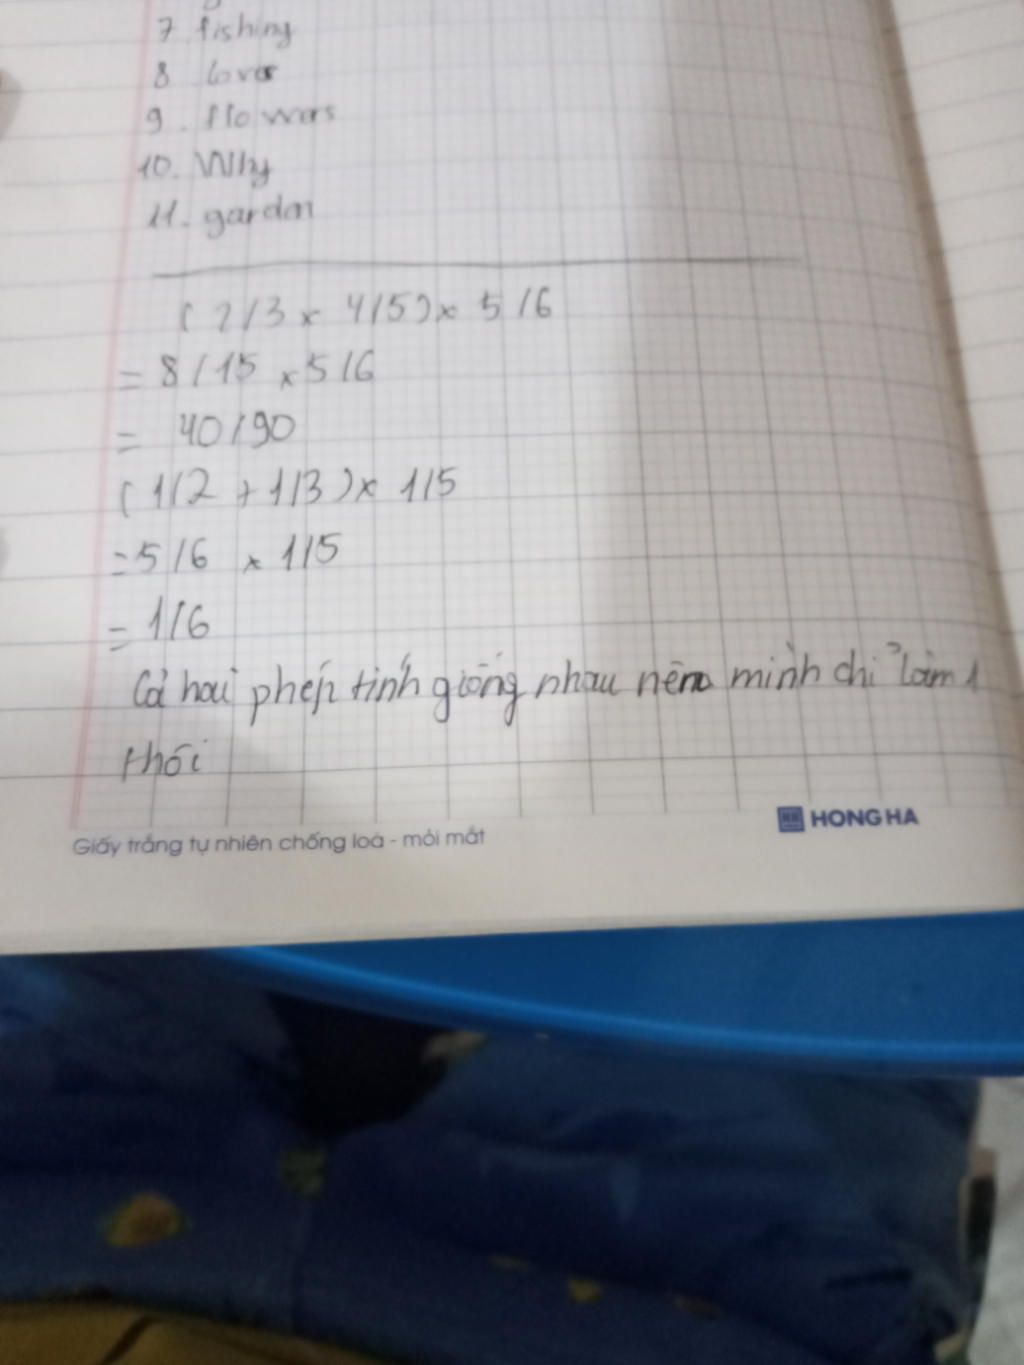 7. fishing
8 lover
9. flowers
10. Why
11. garden
(2/3 x 4/5) x 5/6
= 8/15 x 5/6
= 40/90
(1/2 + 1/3) x 1/5
= 5/6 x 1/5
= 1/6
Cả hai phép tính giống nhau nên mình chỉ làm 1
thôi
HONG HA
Giấy trắng tự nhiên chống loá - mỏi mắt